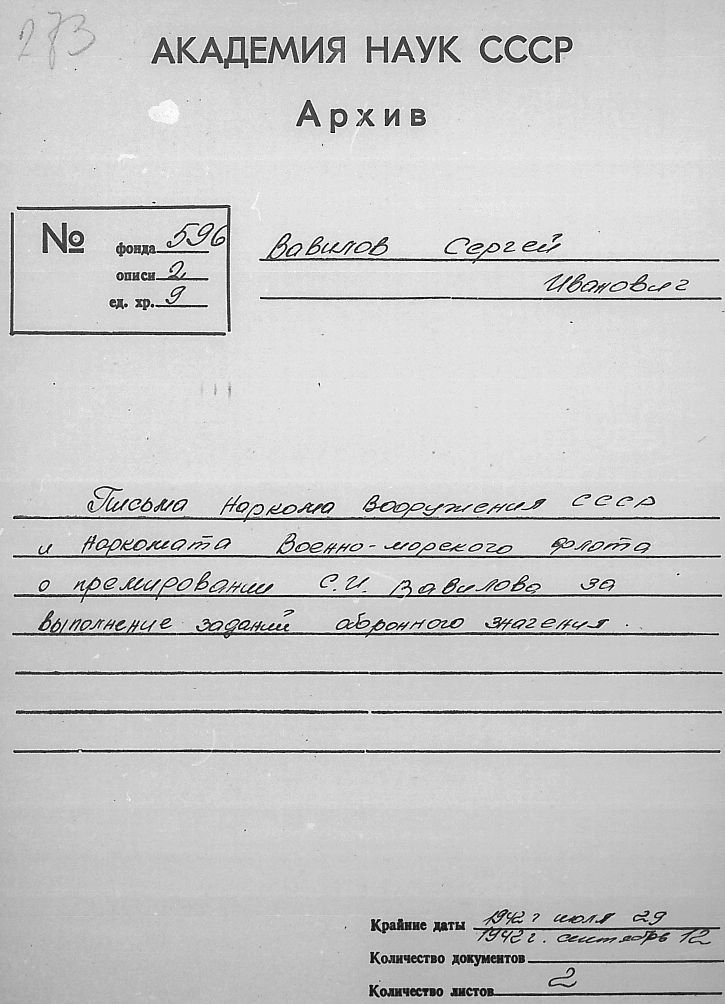 273
АКАДЕМИЯ НАУК СССР
Архив
№ фонда 596
описи 2
ед. хр. 9
Вавилов Сергей
Иванович
Письма Наркома Вооружения СССР
и Наркомата Военно-морского флота
о премировании С.И. Вавилова за
выполнение заданий оборонного значения.
Крайние даты 1942 г июля 29
1942 г. сентябрь 12
Количество документов
Количество листов 2